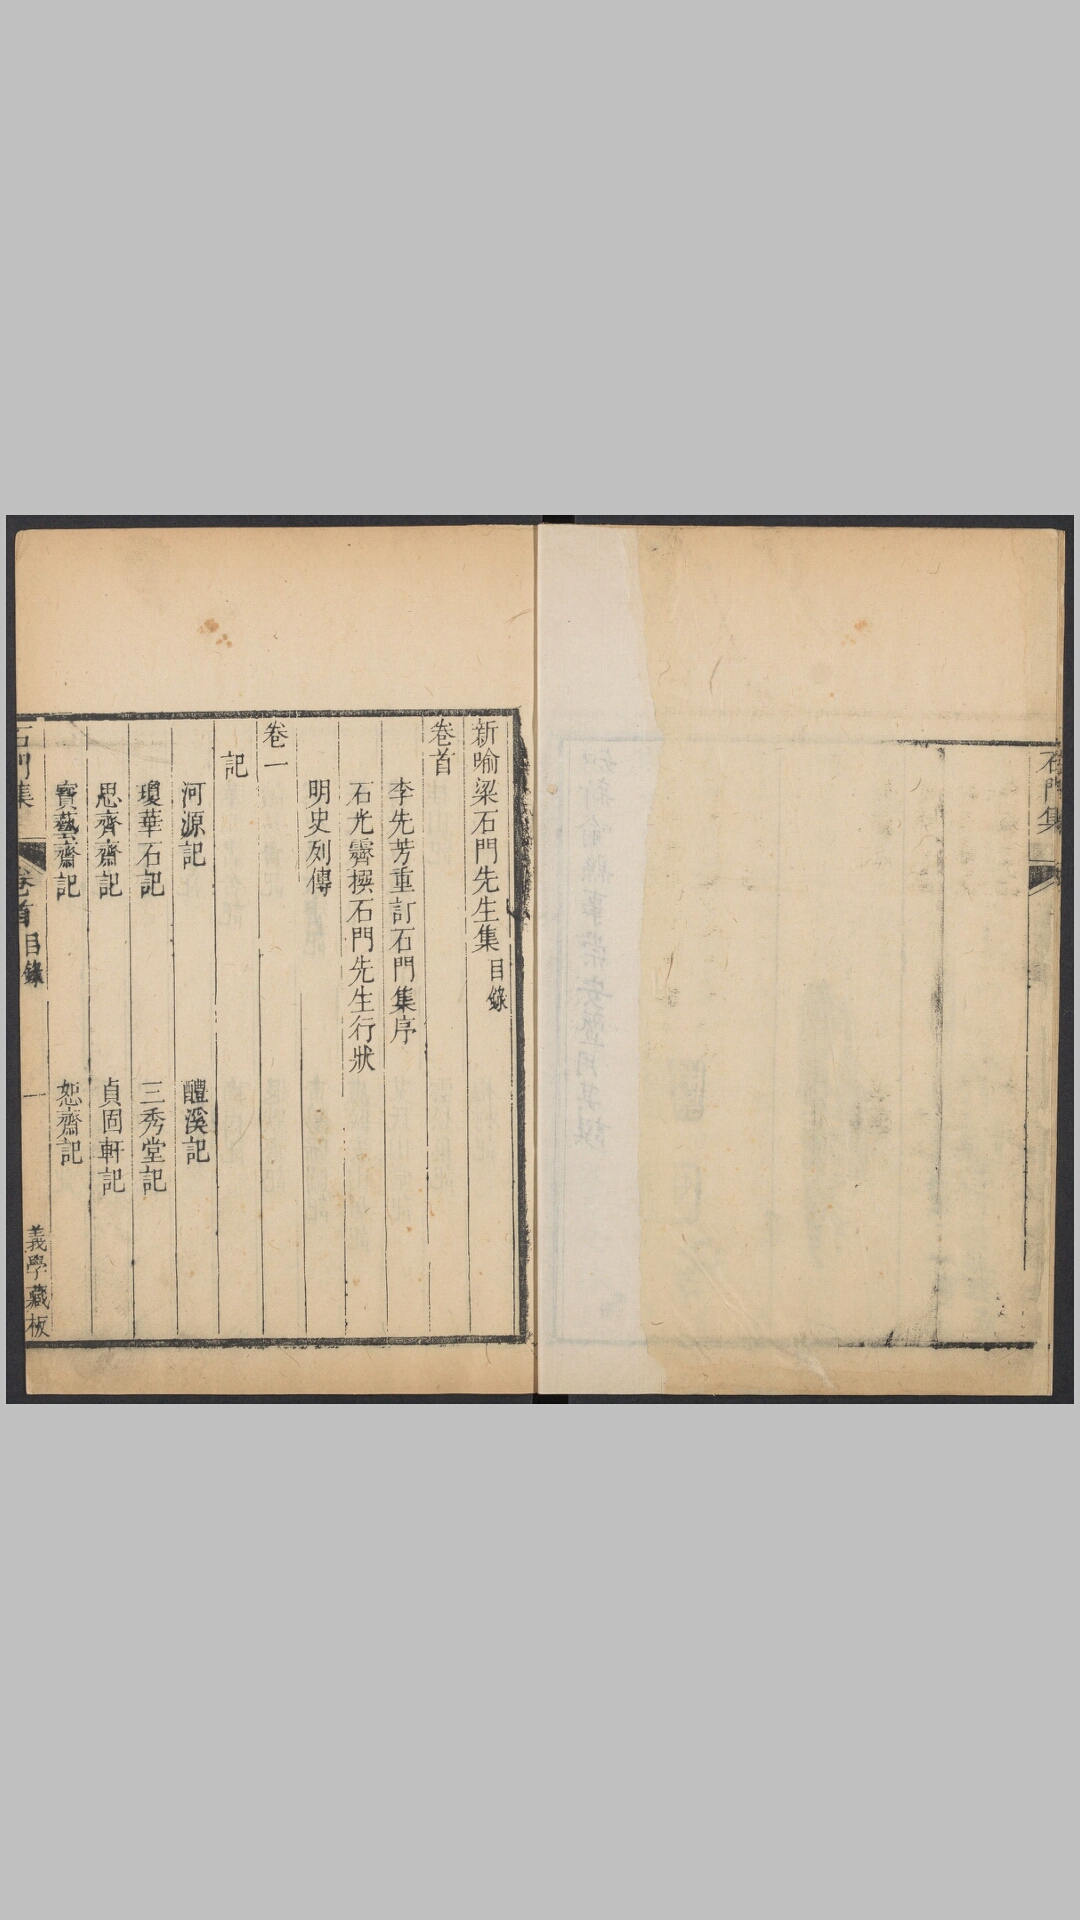 石門集
新喻梁石門先生集目錄
卷首
李先芳重訂石門集序
石光霽撰石門先生行狀
明史列傳
卷一
記
河源記　醴溪記
瓊華石記　三秀堂記
思齊齋記　貞固軒記
寶藝齋記　恕齋記
石門集　卷首目錄　一　義學藏板